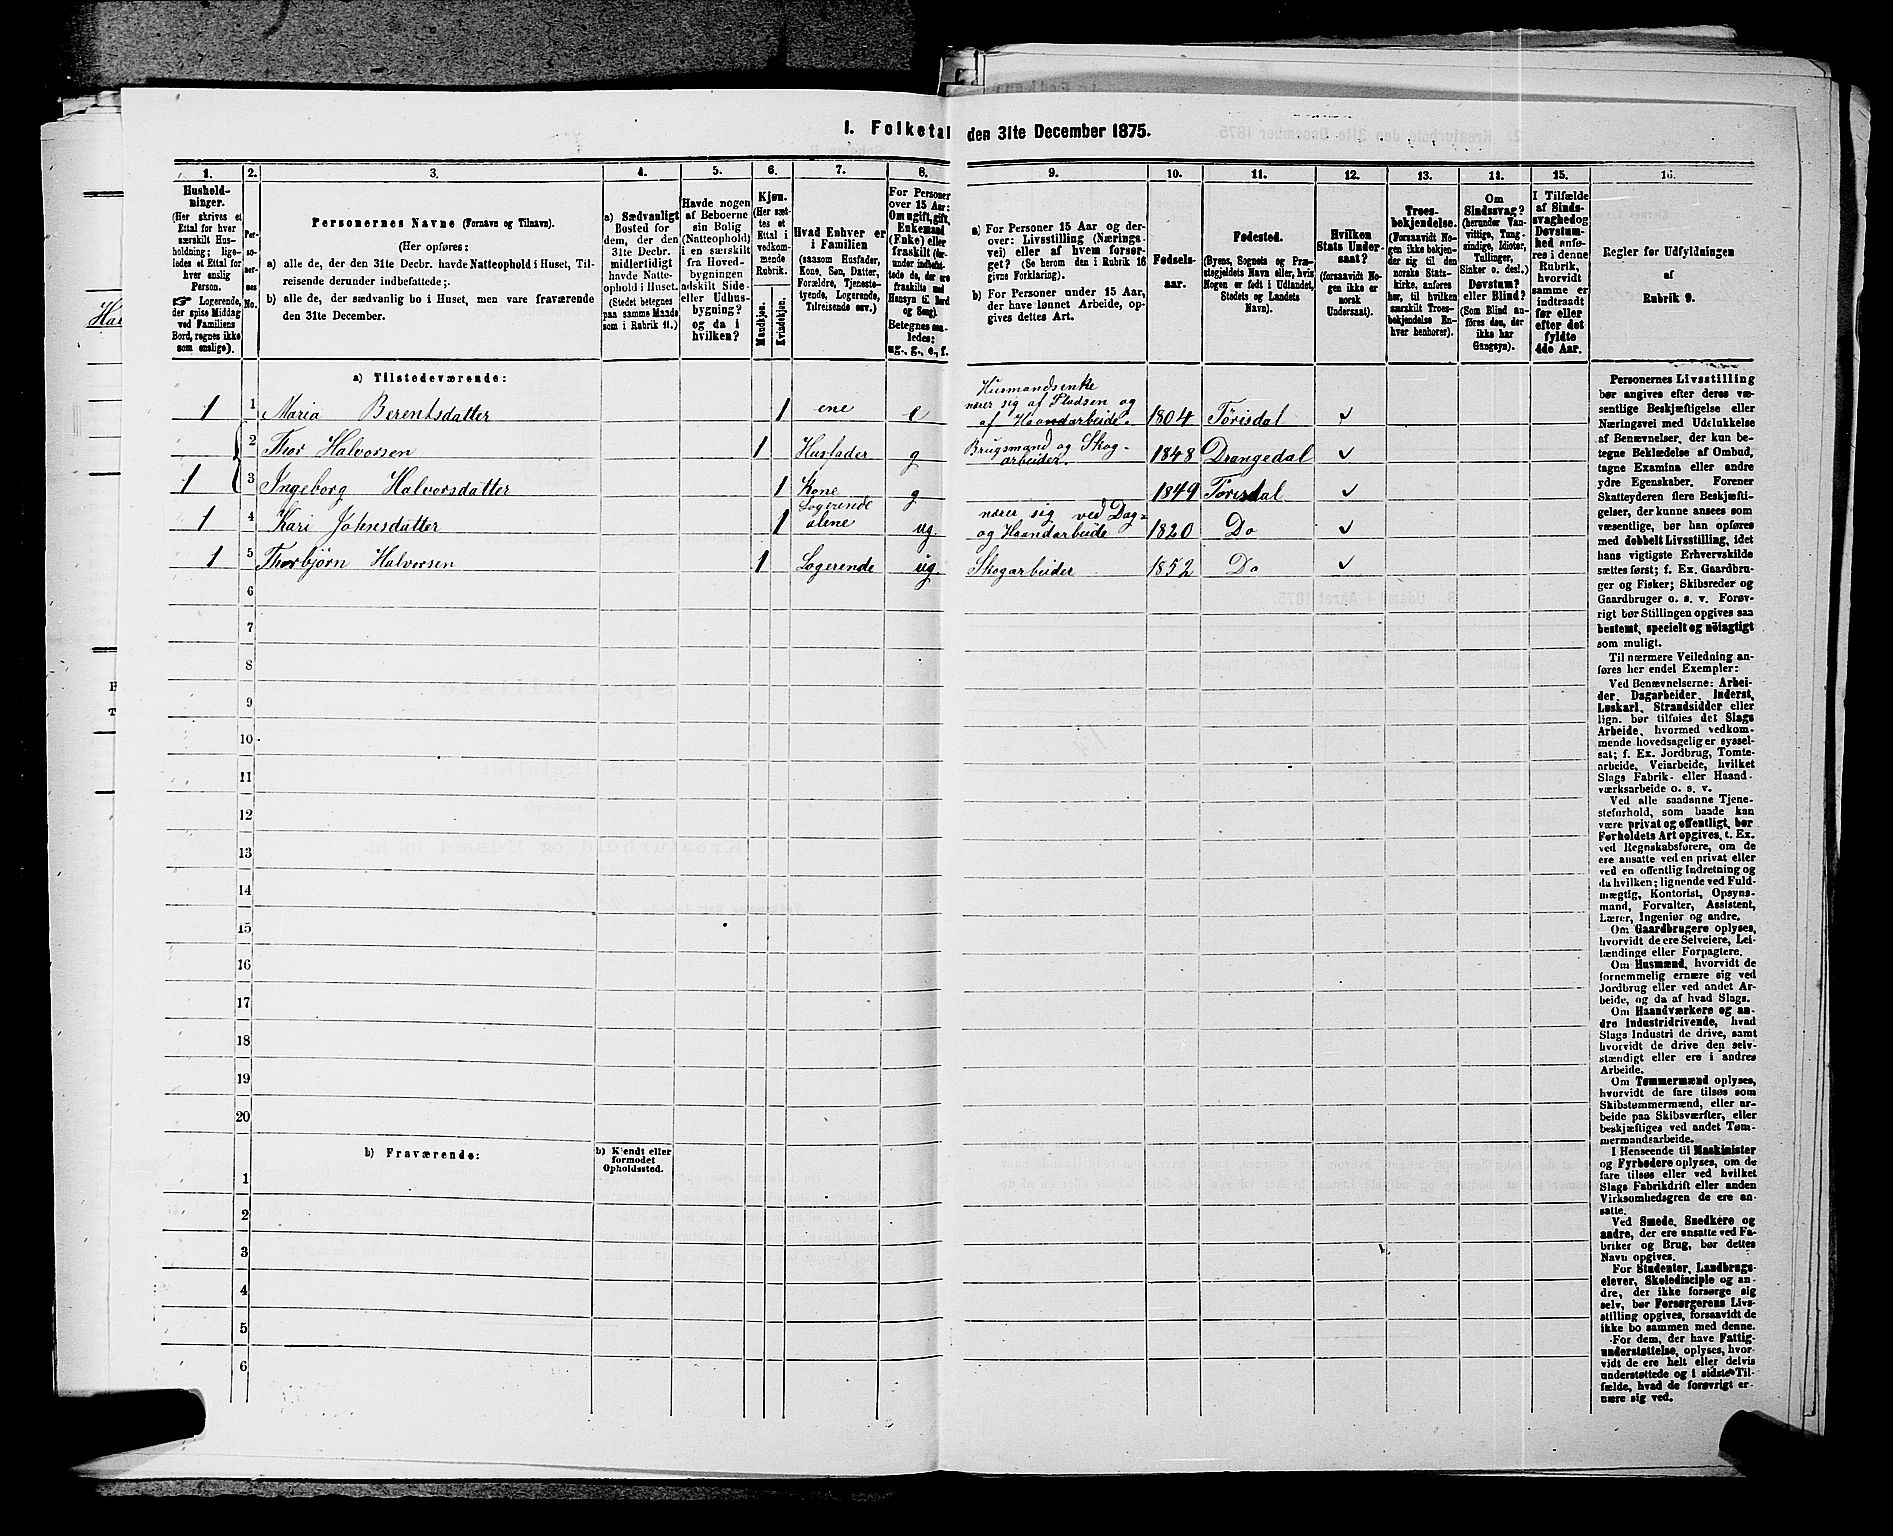 I. Folketal den 31te December 1875.
1. 2. 3. 4. 5. 6. 7. 8. 9. 10. 11. 12. 13. 14. 15. 16.
Hushold-
ninger.
(Her skrives et
Ettal for hver
særskilt Hus-
holdning; lige-
ledes et Ettal for
hver enslig
Person.
☞ Logerende,
der spise Middag
ved Familiens
Bord, regnes ikke
som enslige).
Per-
so-
ner-
nes
No.
Personernes Navne (Fornavn og Tilnavn).
(Her opføres:
a) alle de, der den 31te Decbr. havde Natteophold i Huset, Til-
reisende derunder indbefattede;.
b) alle de, der sædvanlig bo i Huset, men vare fraværende
den 31te December.
a) Sædvanligt
Bosted for
dem, der den
31te Decbr.
midlertidigt
havde Natte-
ophold i Huset.
(Stedet betegnes
paa samme Maade
som i Rubrik 11.)
Havde nogen
af Beboerne
sin Bolig
(Natteophold)
i en særskilt
fra Hoved-
bygningen
adskilt Side-
eller Udhus-
bygning?
og da i
hvilken?
Kjøn.
(Her sæt-
tes et
Ettal i
vedkom-
mende
Rubrik.
Mandkjøn.
Kvindekjøn.
Hvad Enhver er
i Familien
(saasom Husfader,
Kone, Søn, Datter,
Forældre, Tjeneste-
tyende, Logerende,
Tilreisende osv.).
For Personer
over 15 Aar:
Om ugift, gift,
Enkemand
(Enke) eller
fraskilt
Betegnes saa-
ledes:
ug., g., e., f.
a) For Personer 15 Aar og der-
over: Livsstilling (Nærings-
vei) eller af hvem forsør-
get? (Se herom den i Rubrik 16
givne Forklaring).
b) For Personer under 15 Aar,
der have lønnet Arbeide, op-
gives dettes Art.
Fødsels-
aar.
Fødested.
(Byens, Sognets og Præ-
stegjeldets Navn eller, hvis
Nogen er født i Udlandet,
Stedets og Landets
Navn).
Hvilken
Stats Under-
saat?
(forsaavidt No-
gen ikke er
norsk
Undersaat).
Troes-
bekjendelse.
(Forsaavidt No-
gen ikke bekjen-
der sig til den
norske Stats-
kirke, anføres
her, til hvilken
særskilt Troes-
bekjendelse En-
hver henhører).
Om
Sindssvag?
(herunder Van-
vittige, Tung-
sindige, Idioter,
Tullinger,
Sinker o. desl.)
Døvstum?
eller Blind?
(Som Blind an-
føres den, der
ikke har
Gangsyn).
I Tilfælde
af Sinds-
svaghed og
Døvstum-
hed anfø-
res i denne
Rubrik,
hvorvidt
samme er
indtraadt
før eller
efter det
fyldte
4de Aar.
Regler for Udfyldningen
af
Rubrik 9.
a) Tilstedeværende:
1 1 Maria Berentsdatter 1 ene e Husmandsenke
nærer sig af Pladsen og
af Haandarbeide. 1804 Törisdal ✓
2 Thor Halvorsen 1 Husfader g Brugsmand og Skog-
arbeider. 1848 Drangedal ✓
1 3 Ingeborg Halvorsdatter 1 Kone g 1849 Törisdal ✓
1 4 Kari Johnsdatter 1 Logerende
alene ug. nærer sig ved Dag-
og Haandarbeide 1820 Do ✓
1 5 Thorbjörn Halvorsen 1 Logerende ug. Skogarbeider 1852 Do ✓
6
7
8
9
10
11
12
13
14
15
16
17
18
19
20
b) Fraværende:
b) Kjendt eller
formodet
Opholdssted.
1
2
3
4
5
6
Personernes Livsstilling
bør angives efter deres væ-
sentlige Beskjæftigelse eller
Næringsvei med Udelukkelse
af Benævnelser, der kun be-
tegne Beklædelse af Ombud,
tagne Examina eller andre
ydre Egenskaber. Forener
Skatteyderen flere Beskjæfti-
gelser, der kunne ansees som
væsentlige, bør han opføres
med dobbelt Livsstilling, idet
hans vigtigste Erhvervskilde
sættes først; f. Ex. Gaardbru-
ger og Fisker; Skibsreder og
Gaardbruger o. s. v. Forøv-
rigt bør Stillingen opgives saa
bestemt, specielt og nöiagtigt
som muligt.
Til nærmere Veiledning an-
føres her endel Exempler:
Ved Benævnelserne: Arbei-
der, Dagarbeider, Inderst,
Løskarl, Strandsidder eller
lign. bør tilføies det Slags
Arbeide, hvormed vedkom-
mende hovedsagelig er syssel-
sat; f. Ex. Jordbrug, Tomte-
arbeide, Veiarbeide, hvilket
Slags Fabrik- eller Haand-
værksarbeide o. s. v.
Ved alle saadanne Tjene-
steforhold, som baade kan
være privat og offentligt, bør
Forholdets Art opgives, t. Ex.
ved Regnskabsførere, om de
ere ansatte ved en privat eller
ved en offentlig Indretning og
da hvilken; lignende ved Fuld-
mægtig, Kontorist, Opsyns-
mand, Forvalter, Assistent,
Lærer, Ingeniør og andre.
Om Gaardbrugere oplyses,
hvorvidt de ere Selveiere, Lei-
lændinge eller Forpagtere.
Om Husmænd, hvorvidt de
fornemmelig ernære sig ved
Jordbrug eller ved andet Ar-
beide, og da af hvad Slags.
Om Haandværkere og an-
dre Industridrivende, hvad
Slags Industri de drive, samt
hvorvidt de drive den selv-
stændigt eller ere i andres
Arbeide.
Om Tømmermænd oplyses,
hvorvidt de fare tilsøs som
Skibstømmermænd, eller ar-
beide paa Skibsværfter, eller
beskjæftiges ved andet Tøm-
mermandsarbeide.
I Henseende til Maskinister
og Fyrbødere oplyses, om de
fare tilsøs eller ved hvilket
Slags Fabrikdrift eller anden
Virksomhedsgren de ere an-
satte.
Ved Smede, Snedkere og
andre, der ere ansatte ved Fa-
briker og Brug, bør dettes
Navn opgives.
For Studenter, Landbrugs-
elever, Skoledisciple og an-
dre, der ikke forsørge sig
selv, bør Forsørgerens Livs-
stilling opgives, forsaavidt de
ikke bo sammen med denne.
For dem, der have Fattig-
understøttelse, oplyses, hvor-
vidt de ere helt eller delvis
understøttede og i sidste Til-
fælde, hvad de forøvrigt er-
nære sig ved.